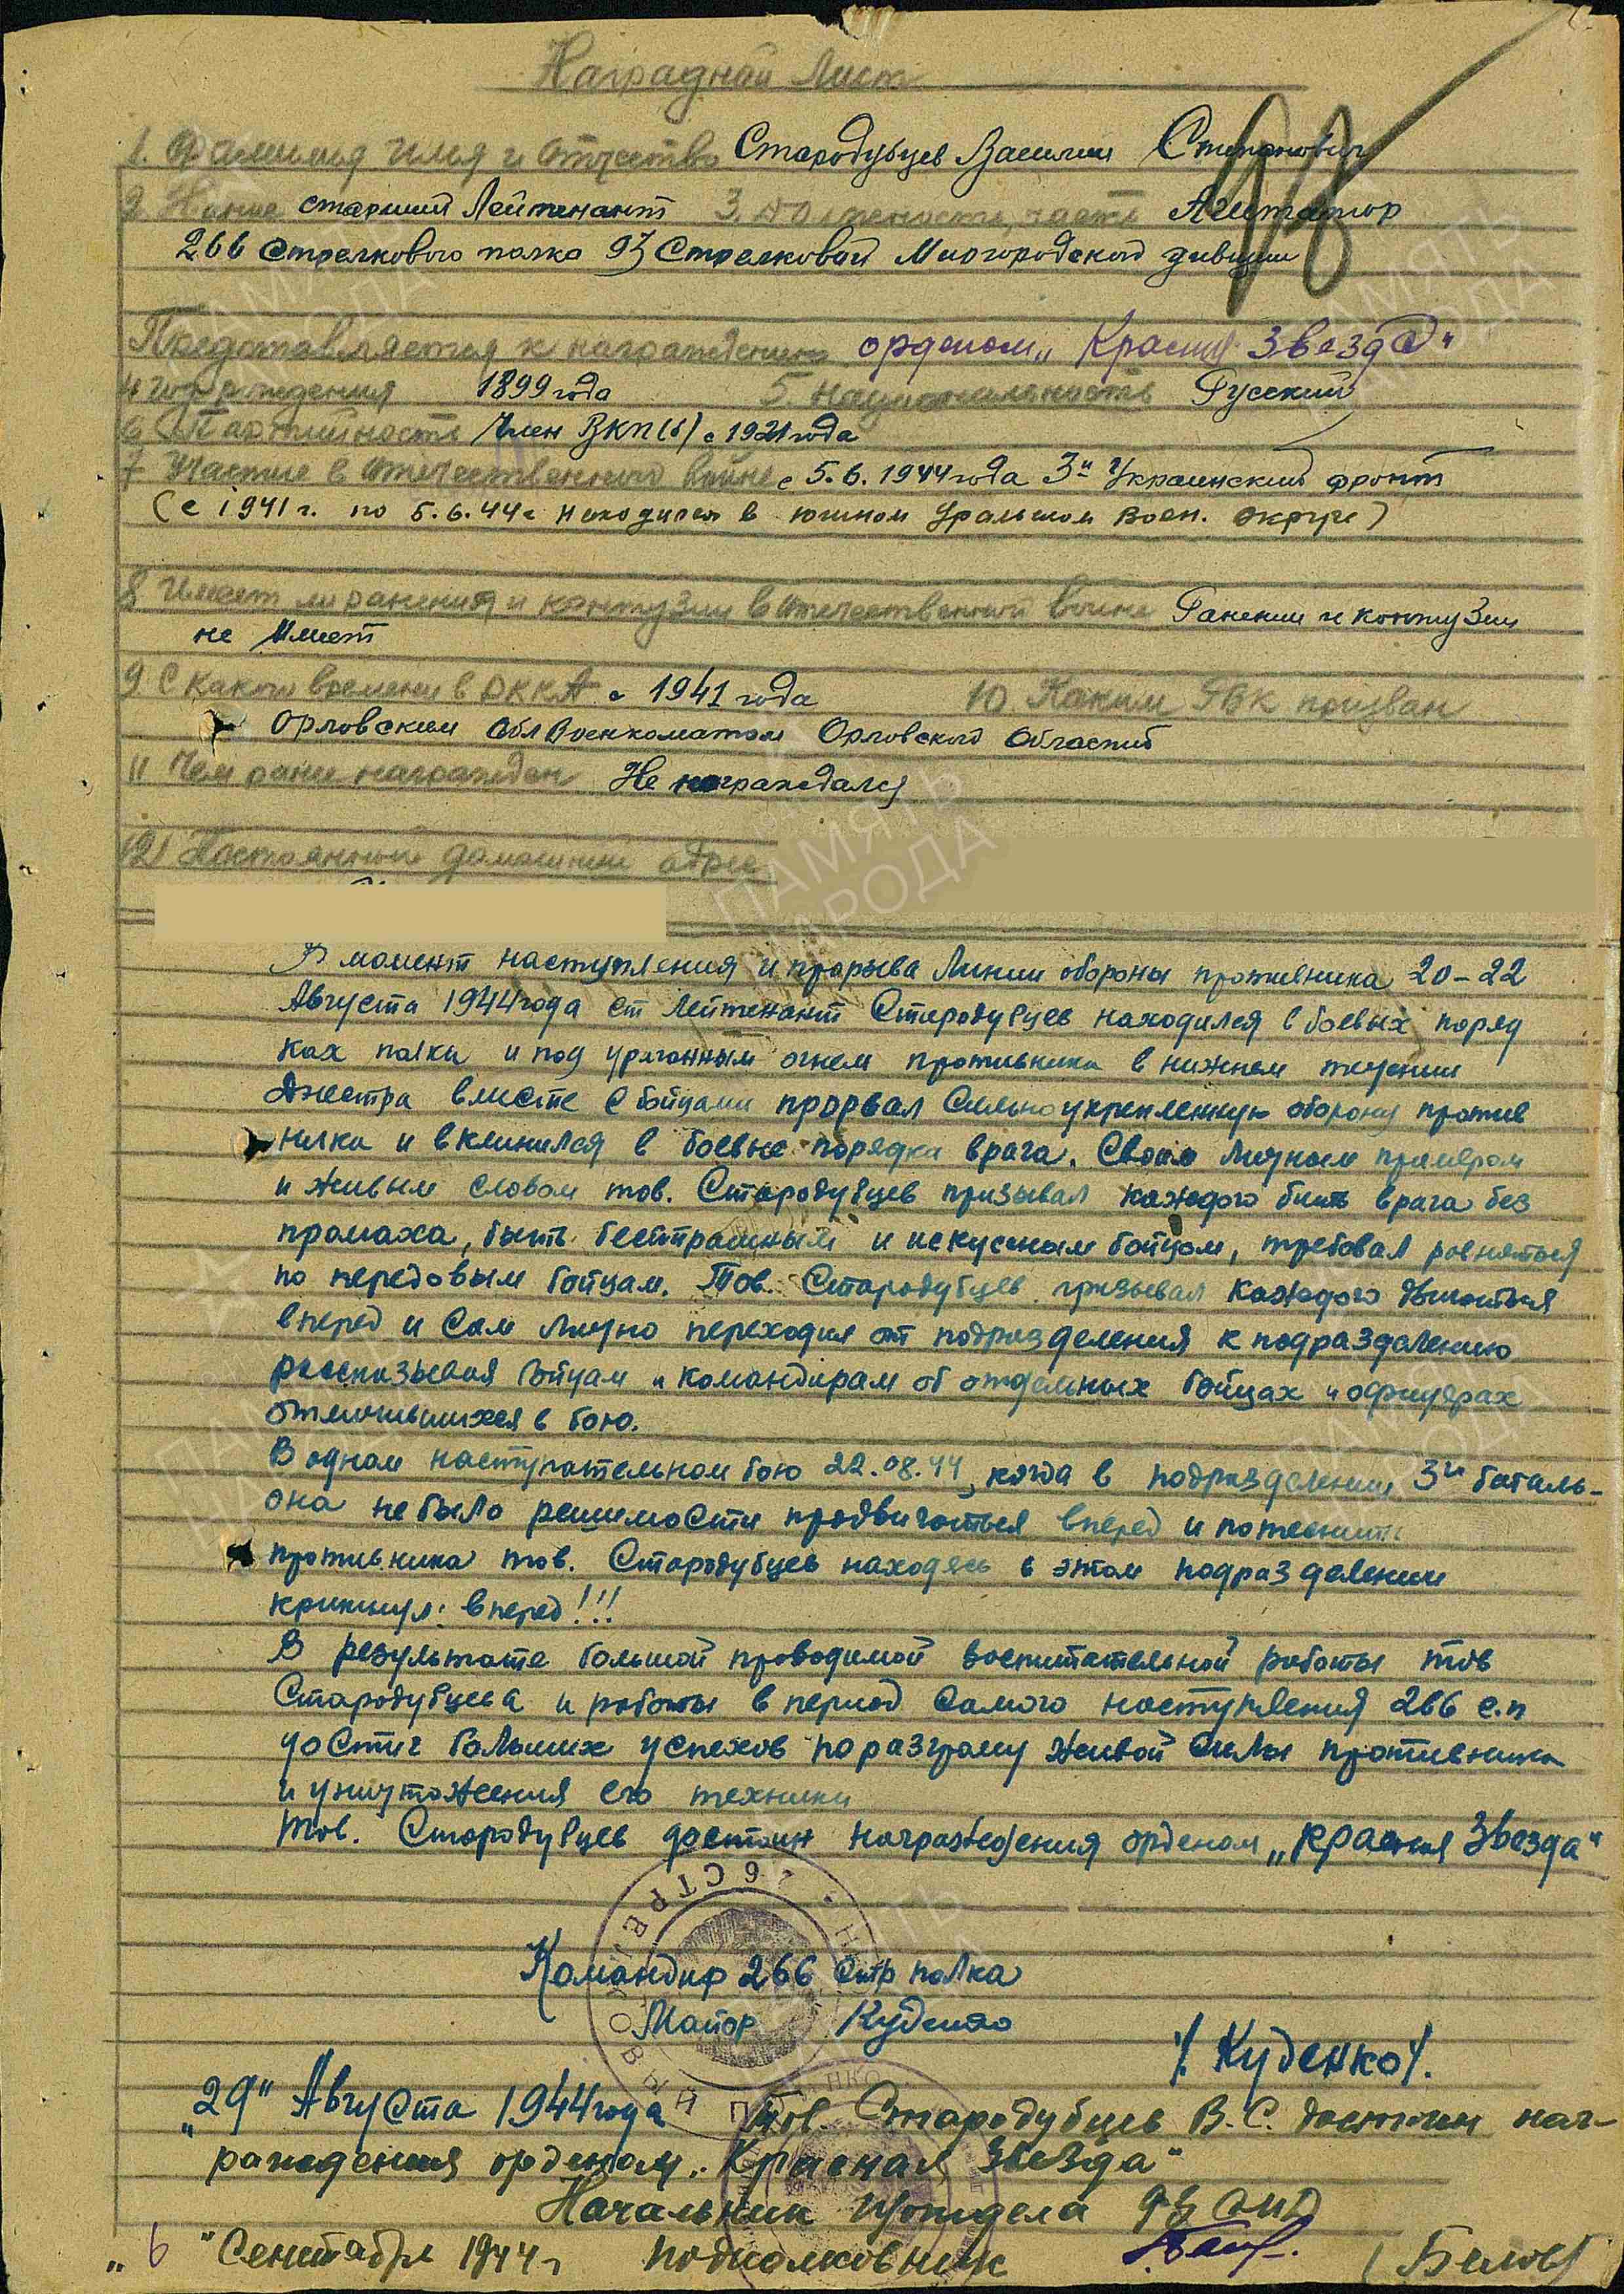 Наградной Лист
1. Фамилия имя и отчество Стародубцев Василий Степанович
2 Звание старший Лейтенант 3. Должность, часть Агитатор
266 Стрелкового полка 93 Стрелковой Миргородской дивизии
Представляется к награждению орденом „Красная Звезда"
4 год рождения 1899 года 5. Национальность Русский
6 Партийность Член ВКП(б) с 1921 года
7 Участие в отечественной войне с 5.6.1944 года 3й Украинский фронт
(с 1941 г. по 5.6.44 г находился в южном Уральском воен. округе)
8 Имеет ли ранения и контузии в отечественной войне Ранении и контузии
не имеет
9 С какого времени в РККА с 1941 года 10. Каким РВК призван
Орловским ОблВоенкоматом Орловской области
11 Чем ранее награжден Не награждался
12) Постоянный домашний адрес
В момент наступления и прорыва Линии обороны противника 20-22
Августа 1944 года ст Лейтенант Стародубцев находился в боевых поряд
ках полка и под ураганным огнем противника в нижнем течении
Днестра вместе с бойцами прорвал Сильно укрепленную оборону против
ника и вклинился в боевые порядки врага. Своим личным примером
и живым словом тов. Стародубцев призывал каждого бить врага без
промаха, быть бесстрашным и искусным бойцом, требовал равняться
по передовым бойцам. Тов. Стародубцев призывал каждого двигаться
вперед и Сам лично переходил от подразделения к подразделению
рассказывая бойцам и командирам об отдельных бойцах и офицерах
отличившихся в бою.
В одном наступательном бою 22.08.44, когда в подразделении 3й баталь-
она не было решимости продвигаться вперед и потеснить
противника тов. Стародубцев находясь в этом подразделении
крикнул: вперед!!!
В результате большой проводимой воспитательной работы тов
Стародубцева и работы в период самого наступления 266 с.п
достиг больших успехов по разгрому живой силы противника
и уничтожения его техники
Тов. Стародубцев достоин награждения орденом „Красная Звезда"
Командир 266 стр полка
Майор Куденко
/Куденко/.
„29" Августа 1944 года Тов. Стародубцев В.С. достоин наг-
раждения орденом „Красная Звезда"
Начальник политотдела 93 СМД
„6" Сентября 1944 г подполковник (Белов)
ПАМЯТЬ
НАРОДА